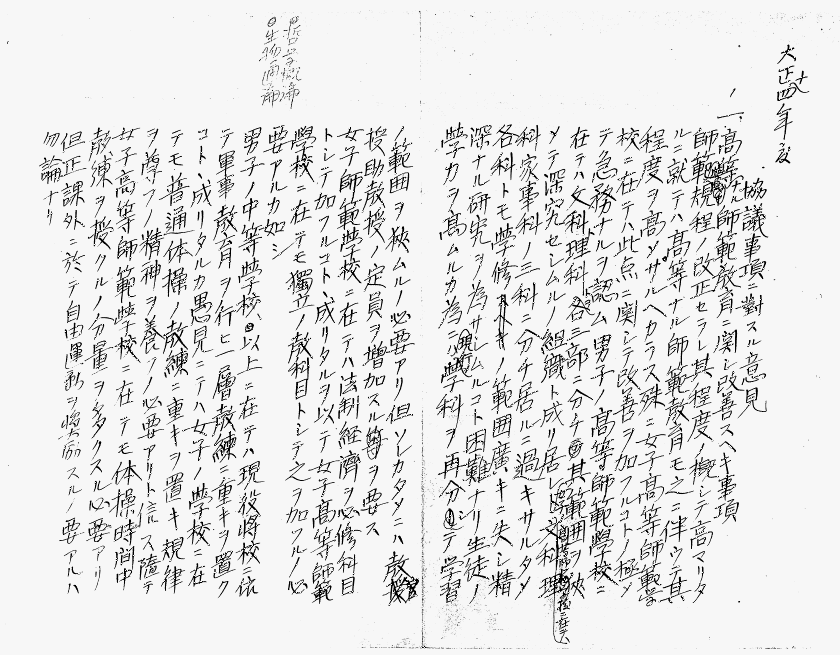 大正十四年度
協議事項ニ對スル意見
一、高等ナル師範教育ニ関シ改善スヘキ事項
師範規程ノ改正セラレ其程度ノ概シテ高マリタ
ルニ就テハ高等ナル師範教育モ之ニ伴ウテ其
程度ヲ高メサルヘカラス殊ニ女子高等師範學
校ニ在テハ此点ニ関シテ改善ヲ加フルコトノ極メ
テ急務ナルヲ認ム男子ノ高等師範學校ニ
在テハ文科理科各三部ニ分チ其範囲ヲ狭
メテ深究セシムルノ組織ト成リ居レ 文科理
科家事科ノ三科ニ分チ居ルニ過キサルタメ
各科トモ學修ノ範囲廣キニ失シ精
深ナル研究ヲ為サシムルコト困難ナリ生徒ノ
學力ヲ高ムルカ為ニハ學科ヲ再分シテ学習
ノ範囲ヲ狭ムルノ必要アリ但ソレカタメニハ教授
授助教授ノ定員ヲ増加スル等ヲ要ス
女子師範學校ニ在テハ法制経済ヲ必修科目
トシテ加フルコトヽ成リタルヲ以テ女子高等師範
學校ニ在テモ獨立ノ教科目トシテ之ヲ加フルノ必
要アルカ如シ
男子ノ中等學校以上ニ在テハ現役将校ニ依
テ軍事教育ヲ行ヒ一層教練ニ重キヲ置ク
コトヽ成リタルカ愚見ニテハ女子ノ學校ニ在
テモ普通体操ノ教練ニ重キヲ置キ規律
ヲ尊フノ精神ヲ養フノ必要アリト信ス隨テ
女子高等師範學校ニ在テモ体操時間中
教練ヲ授クルノ分量ヲ多クスル必要アリ
但正課外ニ於テ自由運動ヲ奨励スルノ要アルハ
勿論ナリ
哲学概論
生物通論